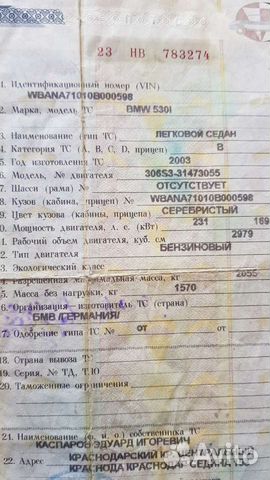 23 НВ 783274
1. Идентификационный номер (VIN)
WBANA71010B000598
2. Марка, модель ТС BMW 530I
3. Наименование (тип ТС) ЛЕГКОВОЙ СЕДАН
4. Категория ТС (A, B, C, D, прицеп) B
5. Год изготовления ТС 2003
6. Модель, № двигателя 306S3-31473055
7. Шасси (рама) № ОТСУТСТВУЕТ
8. Кузов (кабина, прицеп) № WBANA71010B000598
9. Цвет кузова (кабины, прицепа) СЕРЕБРИСТЫЙ
0. Мощность двигателя, л. с. (кВт) 231 169
1. Рабочий объем двигателя, куб. см 2979
2. Тип двигателя БЕНЗИНОВЫЙ
3. Экологический класс
4. Разрешенная максимальная масса, кг 2055
5. Масса без нагрузки, кг 1570
6. Организация-изготовитель ТС (страна)
БМВ /ГЕРМАНИЯ/
17. Одобрение типа ТС № от от
18. Страна вывоза ТС
19. Серия, № ТД, ТПО
20. Таможенные ограничения
21. Наименование (ф. и. о.) собственника ТС
КАСПАРОВ ЭДУАРД ИГОРЕВИЧ
22. Адрес КРАСНОДАРСКИЙ
КРАСНОДА КРАСНОДАР СЕДИНА 150
Avito